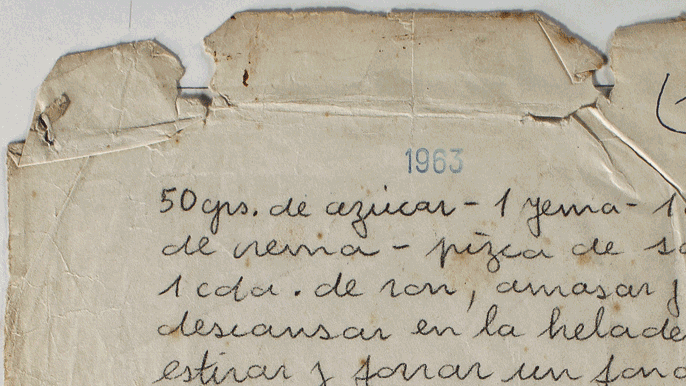 1963
50 grs. de azúcar - 1 yema - 1
de crema - pizca de
1 cda. de ron, amasar y
descansar en la
estirar y forrar un